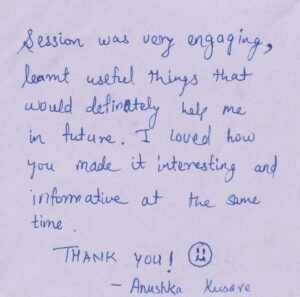 Session was very engaging,
learnt useful things that
would definately help me
in future. I loved how
you made it interesting and
informative at the same
time.
THANK YOU!
- Anushka Kusare